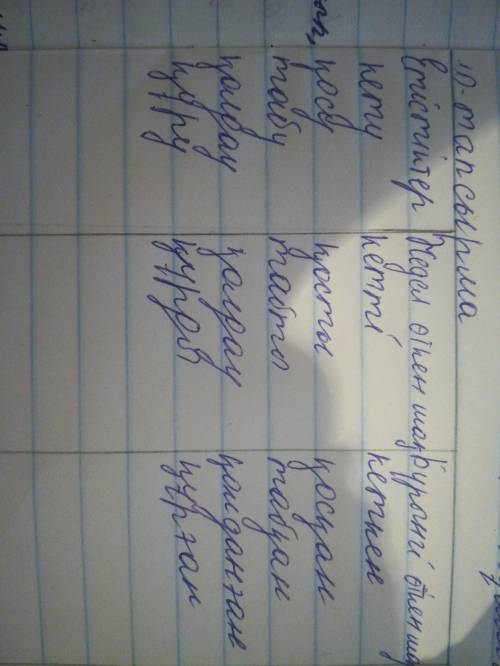 10-тапсырма
Етістіктер Жедел өткен шақ Бұрынғі өткен ша
кету кетті кеткен
қосу қосты қосқан
табу табты табқан
қолдау қолдау қолданған
құру құрды құрған